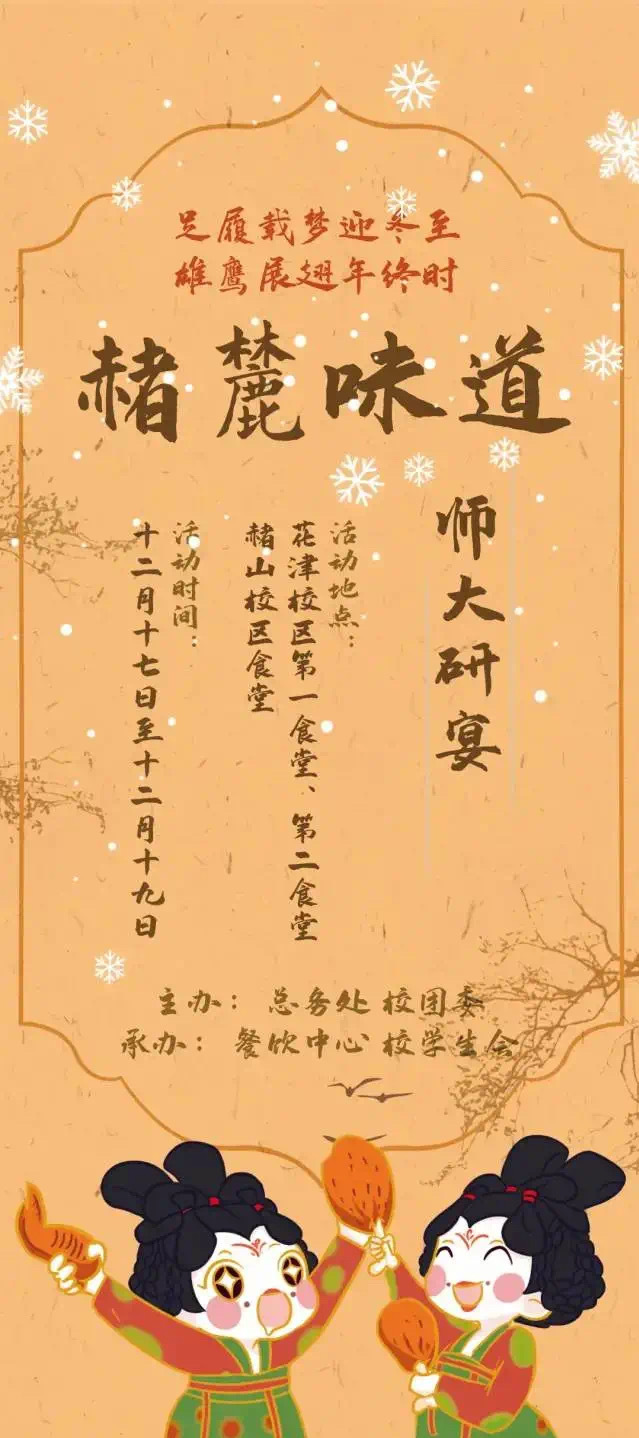 足履载梦迎冬至
雄鹰展翅年终时
赭麓味道
师大研宴
活动地点：
花津校区第一食堂、第二食堂
赭山校区食堂
活动时间：
十二月十七日至十二月十九日
主办：总务处 校团委
承办：餐饮中心 校学生会